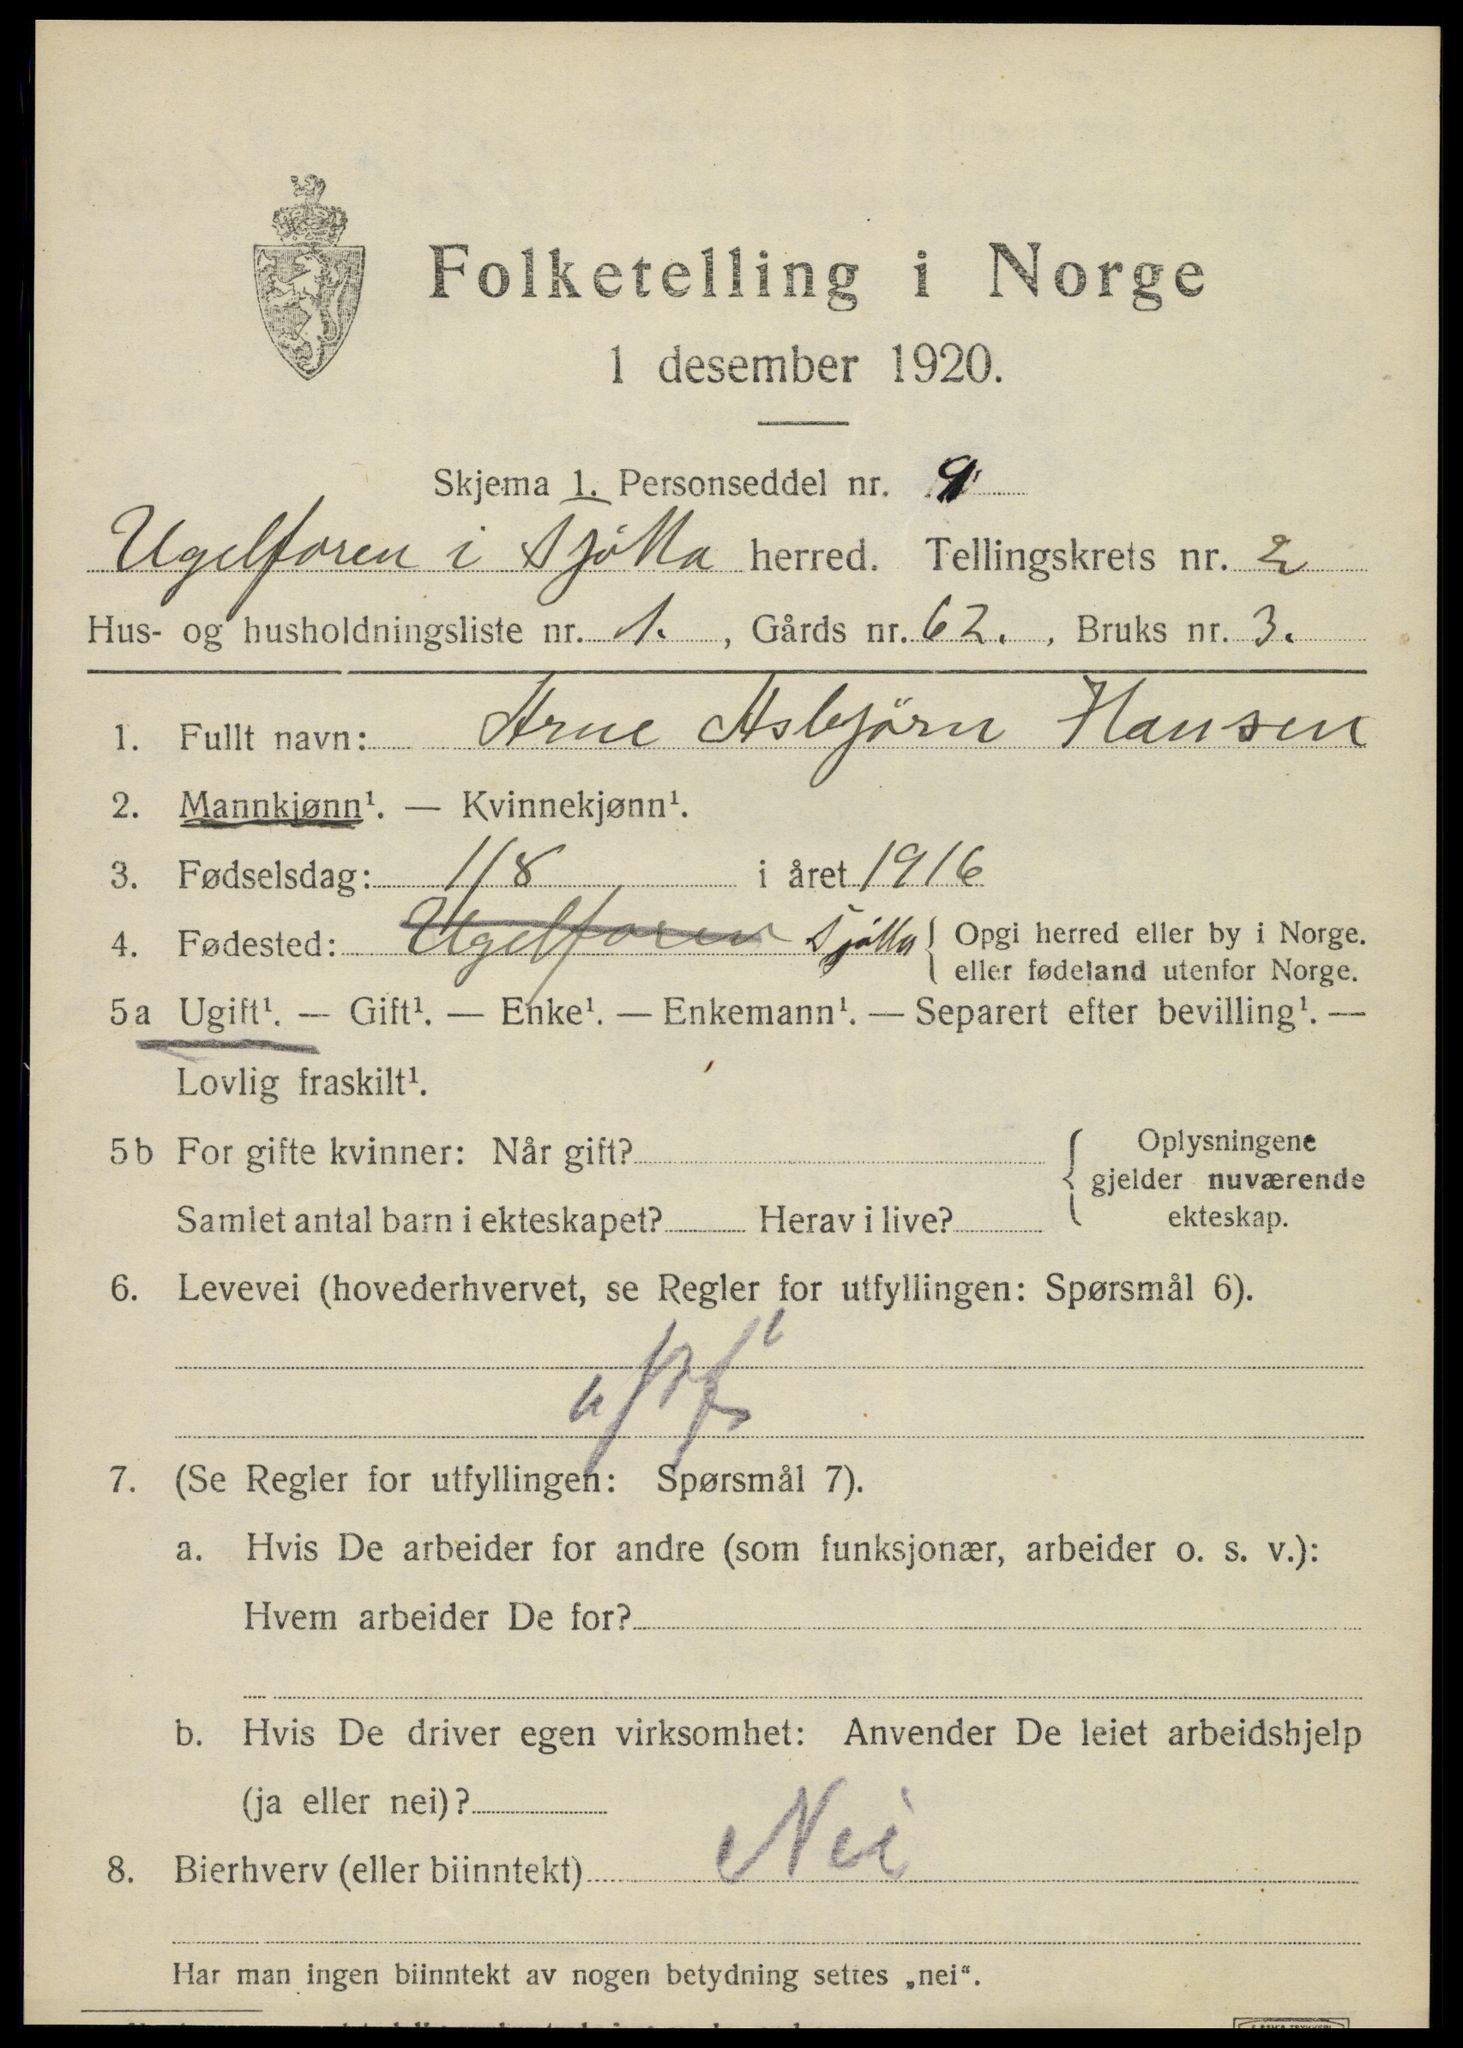 Folketelling i Norge
1 desember 1920.
Skjema 1. Personseddel nr. 9
Ugelforen i Tjøtta herred. Tellingskrets nr. 2
Hus- og husholdningsliste nr. 1. , Gårds nr. 62. , Bruks nr. 3.
1. Fullt navn: Arne Asbjørn Hansen
2. Mannkjønn¹. — Kvinnekjønn¹.
3. Fødselsdag: 1/8 i året 1916
4. Fødested: Ugelforen Tjøtta { Opgi herred eller by i Norge.
eller fødeland utenfor Norge.
5a Ugift¹. — Gift¹. — Enke¹. — Enkemann¹. — Separert efter bevilling¹. —
Lovlig fraskilt¹.
5b For gifte kvinner: Når gift? { Oplysningene
gjelder nuværende
Samlet antal barn i ekteskapet? Herav i live? ekteskap.
6. Levevei (hovederhvervet, se Regler for utfyllingen: Spørsmål 6).
7. (Se Regler for utfyllingen: Spørsmål 7).
a. Hvis De arbeider for andre (som funksjonær, arbeider o. s. v.):
Hvem arbeider De for?
b. Hvis De driver egen virksomhet: Anvender De leiet arbeidshjelp
(ja eller nei)?
8. Bierhverv (eller biinntekt) Nei
Har man ingen biinntekt av nogen betydning settes „nei“.